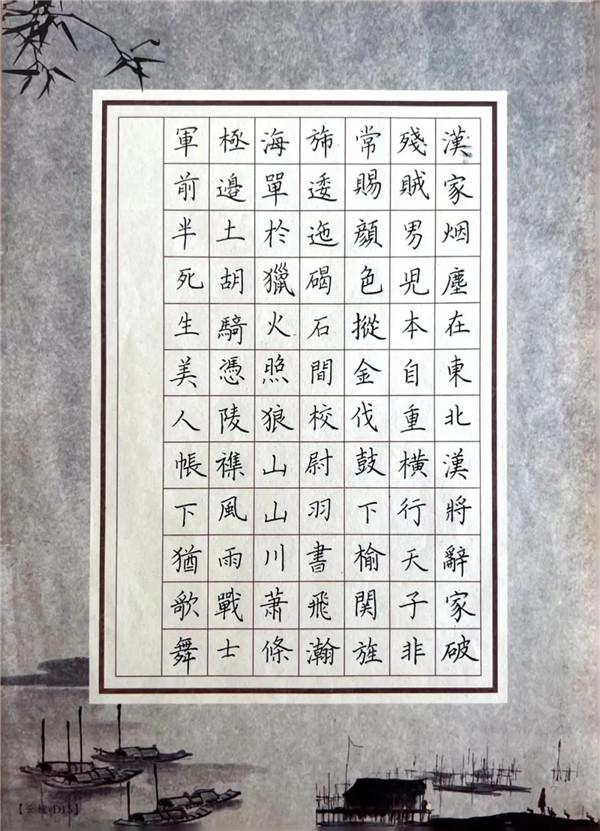 漢家烟塵在東北漢將辭家破
殘賊男兒本自重橫行天子非
常賜顔色摐金伐鼓下榆関旌
斾逶迤碣石間校尉羽書飛瀚
海單於獵火照狼山山川蕭條
極邊土胡騎憑陵襍風雨戰士
軍前半死生美人帳下猶歌舞